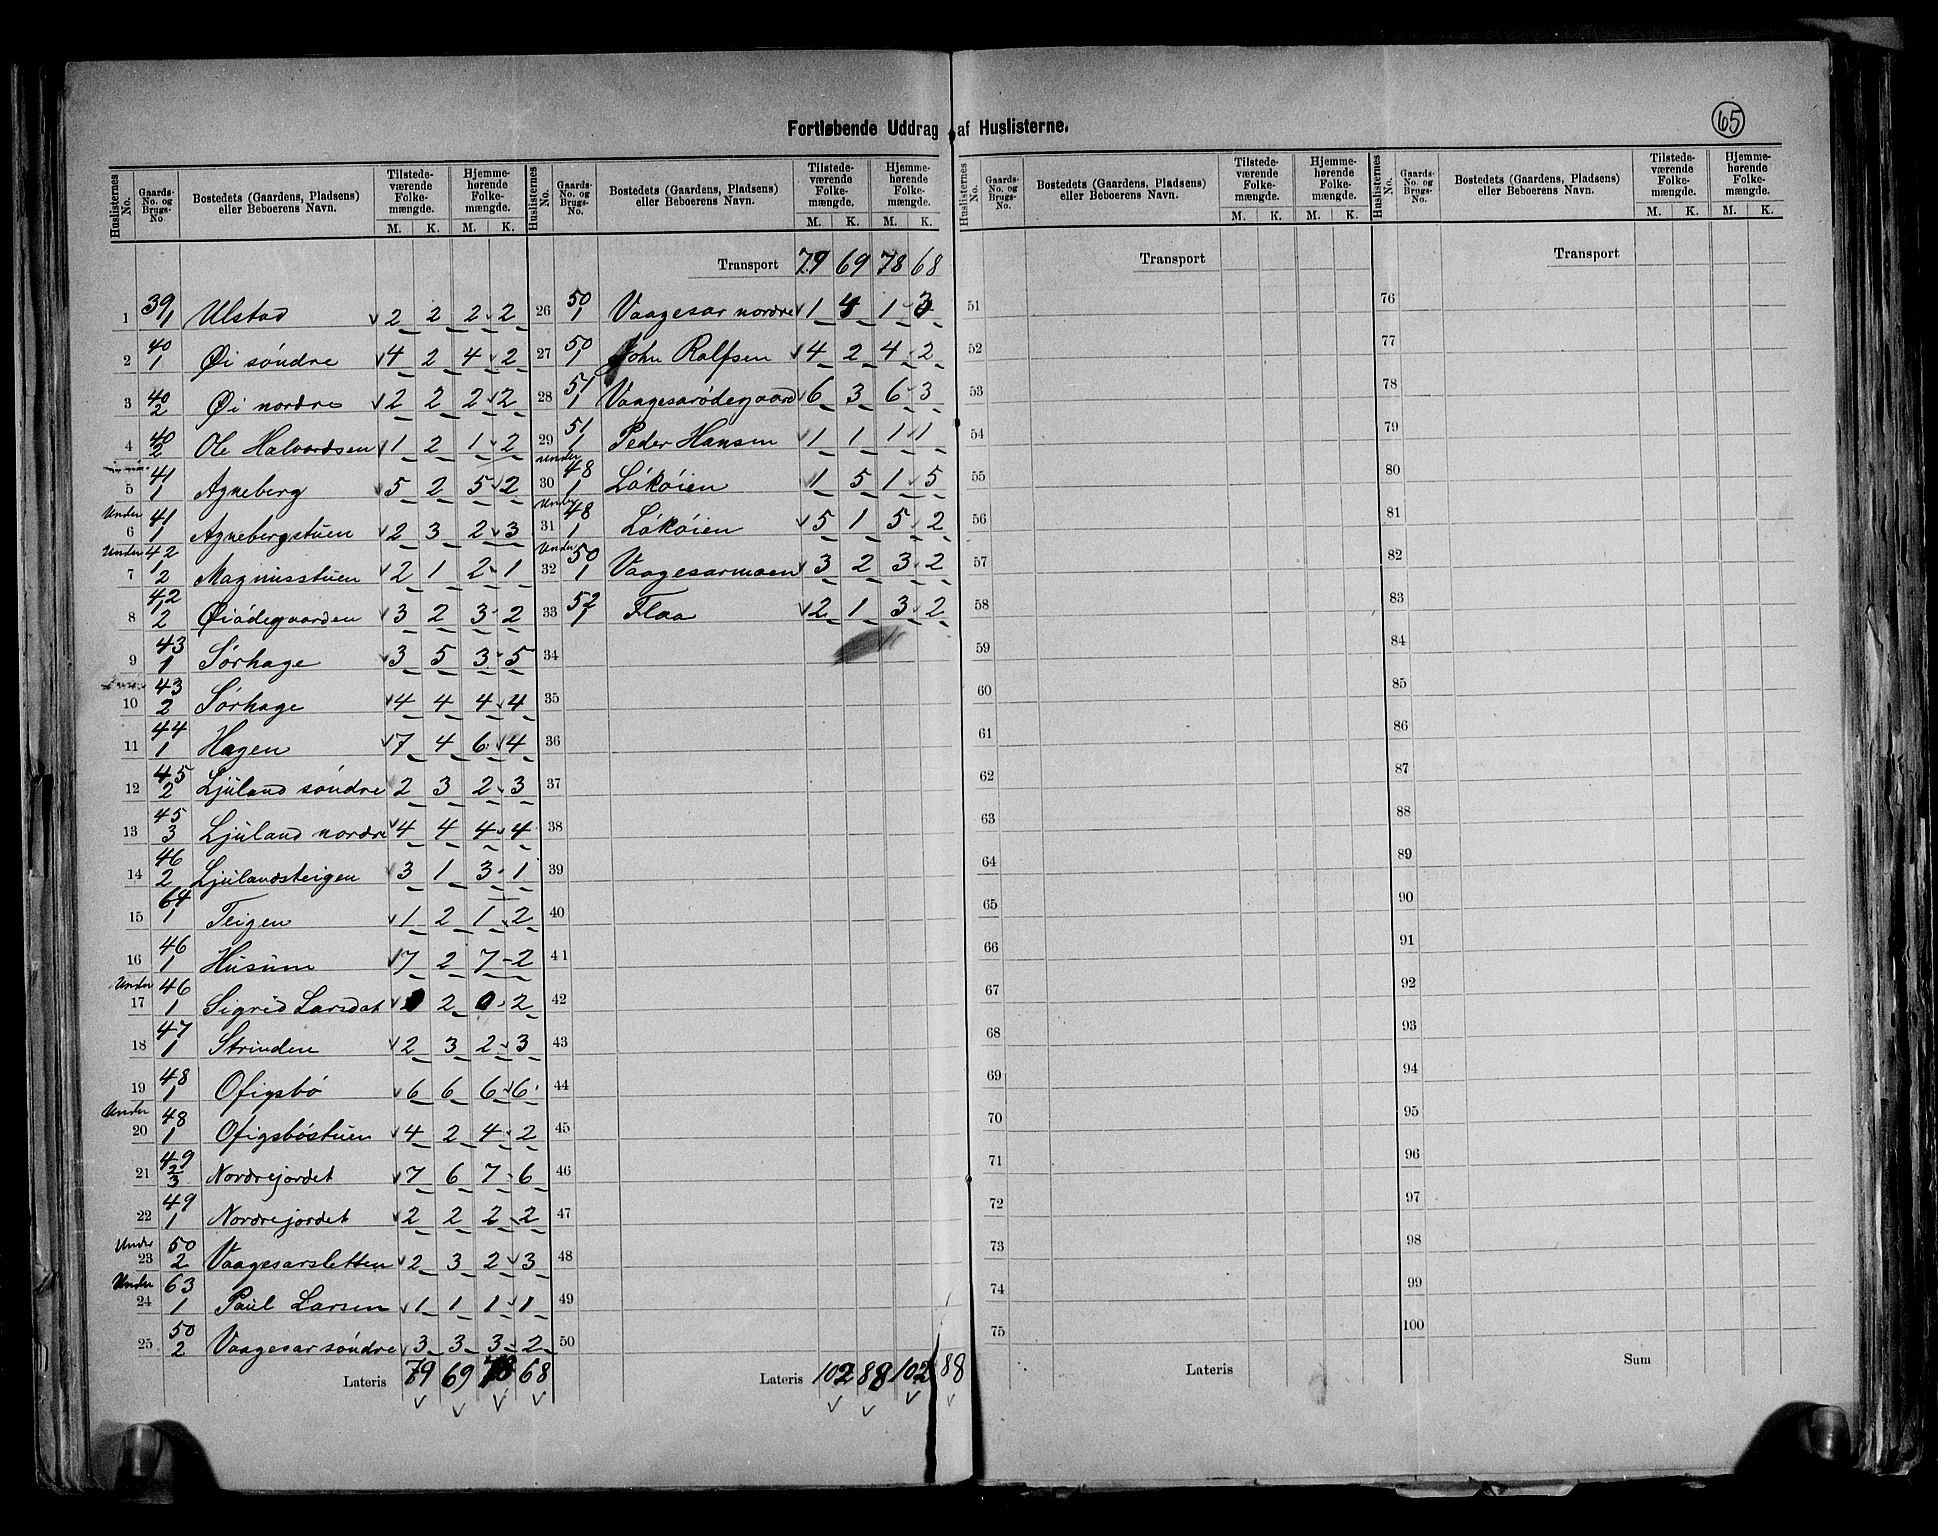 Fortløbende Uddrag af Huslisterne.
65
Huslisternes No. | Gaards-No. og Brugs-No. | Bostedets (Gaardens, Pladsens) eller Beboerens Navn. | Tilstedeværende Folkemængde. M. K. | Hjemmehørende Folkemængde. M. K.
1 | 39/1 | Ulstad | 2 | 2 | 2 | 2
2 | 40/1 | Øi søndre | 4 | 2 | 4 | 2
3 | 40/2 | Øi nordre | 2 | 2 | 2 | 2
4 | 40/2 | Ole Halvordsen | 1 | 2 | 1 | 2
5 | 41/1 | Agneberg | 5 | 2 | 5 | 2
Under 6 | 41/1 | Agnebergstuen | 2 | 3 | 2 | 3
Under 7 | 42/1/2 | Magnusstuen | 2 | 1 | 2 | 1
8 | 42/1/2 | Øiødegaarden | 3 | 2 | 3 | 2
9 | 43/1 | Sørhage | 3 | 5 | 3 | 5
10 | 43/2 | Sørhage | 4 | 4 | 4 | 4
11 | 44/1 | Hagen | 7 | 4 | 6 | 4
12 | 45/2 | Ljuland søndre | 2 | 3 | 2 | 3
13 | 45/3 | Ljuland nordre | 4 | 4 | 4 | 4
14 | 46/2 | Ljulandsteigen | 3 | 1 | 3 | 1
15 | 64/1 | Teigen | 1 | 2 | 1 | 2
16 | 46/1 | Husum | 7 | 2 | 7 | 2
Under 17 | 46/1 | Sigrid Larsdat | 0 | 2 | 0 | 2
18 | 47/1 | Strinden | 2 | 3 | 2 | 3
19 | 48/1 | Ofigsbø | 6 | 6 | 6 | 6
Under 20 | 48/1 | Ofigsbøstuen | 4 | 2 | 4 | 2
21 | 49/2/3 | Nordrejordet | 7 | 6 | 7 | 6
22 | 49/1 | Nordrejordet | 2 | 2 | 2 | 2
Under 23 | 50/2 | Vaagesarsletten | 2 | 3 | 2 | 3
Under 24 | 63/1 | Paul Larsen | 1 | 1 | 1 | 1
25 | 50/2 | Vaagesar søndre | 3 | 3 | 3 | 2
Lateris | 79 | 69 | 78 | 68
Huslisternes No. | Gaards-No. og Brugs-No. | Bostedets (Gaardens, Pladsens) eller Beboerens Navn. | Tilstedeværende Folkemængde. M. K. | Hjemmehørende Folkemængde. M. K.
Transport | 79 | 69 | 78 | 68
26 | 50/1 | Vaagesar nordre | 1 | 4 | 1 | 3
27 | 50/1 | John Rolfsen | 4 | 2 | 4 | 2
28 | 51/1 | Vaagesarødegaard | 6 | 3 | 6 | 3
29 | 51/1 | Peder Hansen | 1 | 1 | 1 | 1
under 30 | 48/1 | Løkøien | 1 | 5 | 1 | 5
Under 31 | 48/1 | Løkøien | 5 | 1 | 5 | 2
Under 32 | 50/1 | Vaagesarmoen | 3 | 2 | 3 | 2
33 | 52/1 | Flaa | 2 | 1 | 3 | 2
34
35
36
37
38
39
40
41
42
43
44
45
46
47
48
49
50
Lateris | 102 | 88 | 102 | 88
Huslisternes No. | Gaards-No. og Brugs-No. | Bostedets (Gaardens, Pladsens) eller Beboerens Navn. | Tilstedeværende Folkemængde. M. K. | Hjemmehørende Folkemængde. M. K.
Transport
51
52
53
54
55
56
57
58
59
60
61
62
63
64
65
66
67
68
69
70
71
72
73
74
75
Lateris
Huslisternes No. | Gaards-No. og Brugs-No. | Bostedets (Gaardens, Pladsens) eller Beboerens Navn. | Tilstedeværende Folkemængde. M. K. | Hjemmehørende Folkemængde. M. K.
Transport
76
77
78
79
80
81
82
83
84
85
86
87
88
89
90
91
92
93
94
95
96
97
98
99
100
Sum